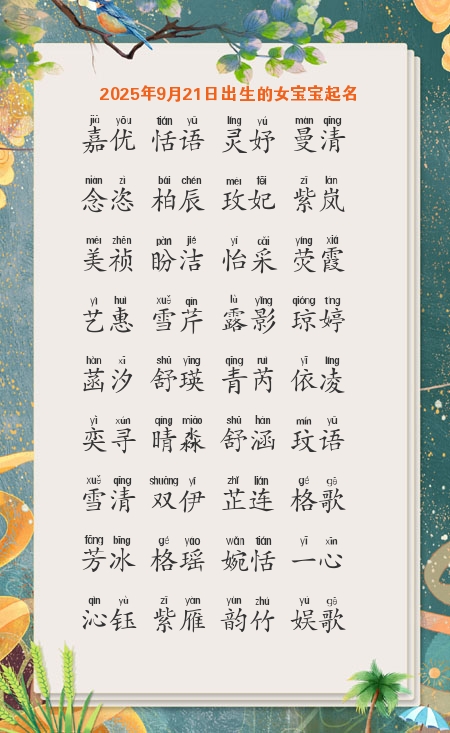 2025年9月21日出生的女宝宝起名
jiā yōu tián yǔ líng yú màn qīng
嘉优 恬语 灵妤 曼清
niàn zī bǎi chén méi fēi zǐ lán
念恣 柏辰 玫妃 紫岚
měi zhēn pàn jié yí cǎi yíng xiá
美祯 盼洁 怡采 荧霞
yì huì xuě qín lù yǐng qióng tíng
艺惠 雪芹 露影 琼婷
hàn xī shū yīng qīng ruì yī líng
菡汐 舒瑛 青芮 依凌
yì xún qíng miǎo shū hán mín yǔ
奕寻 晴淼 舒涵 玟语
xuě qīng shuāng yī zhǐ lián gé gē
雪清 双伊 芷连 格歌
fāng bīng gé yáo wǎn tián yī xīn
芳冰 格瑶 婉恬 一心
qìn yù zǐ yàn yùn zhú yú gē
沁钰 紫雁 韵竹 娱歌